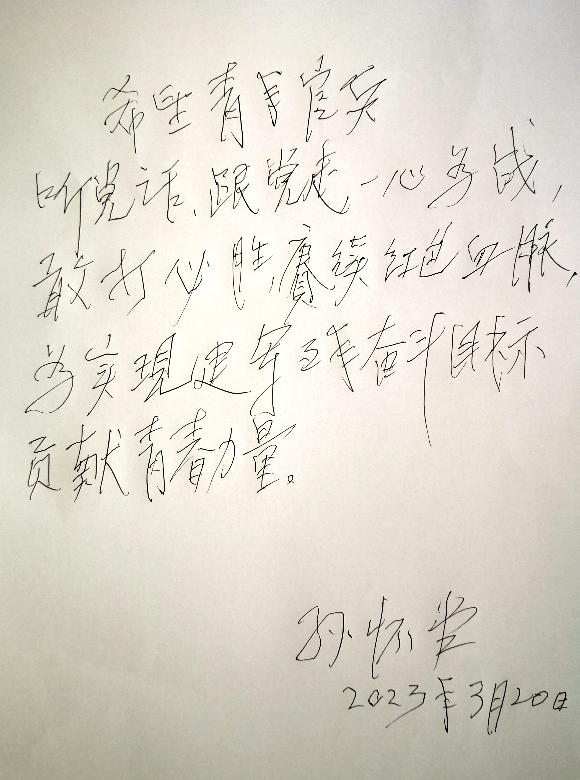 希望青年官兵
听党话,跟党走,一心为战,
敢打必胜,赓续红色血脉,
为实现建军百年奋斗目标
贡献青春力量。
孙怀堂
2023年3月20日